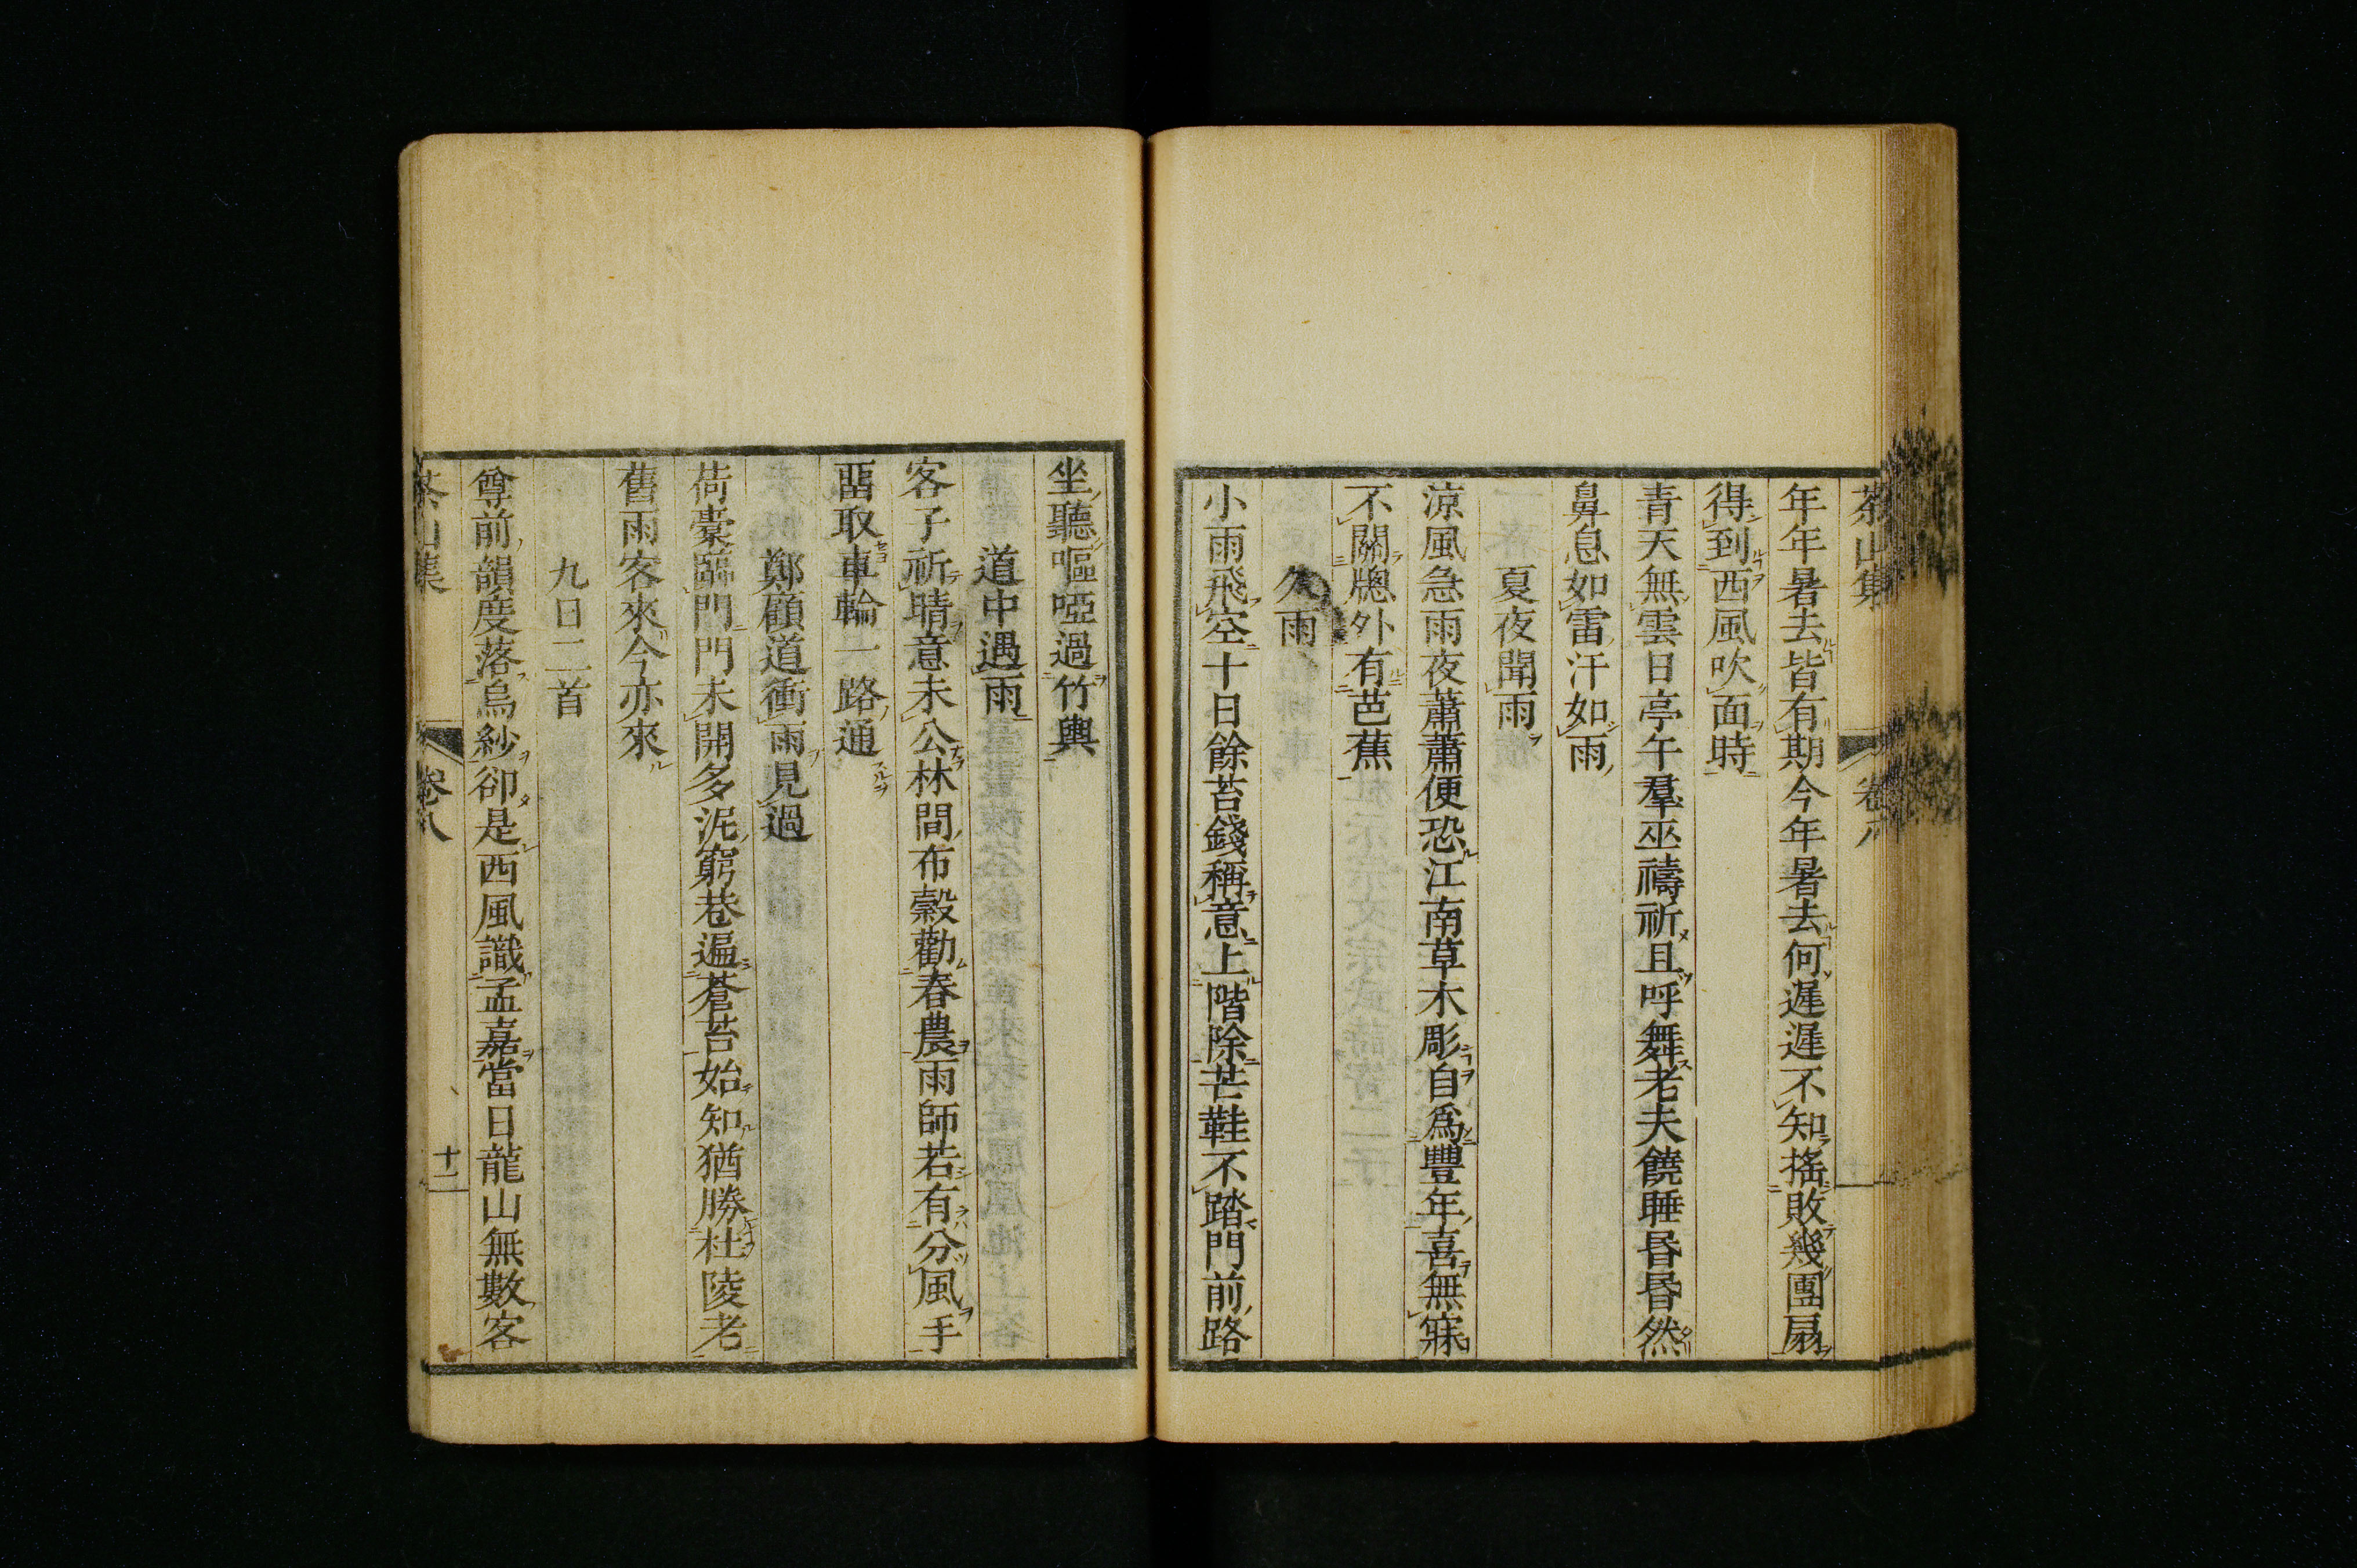 茶山集 卷八
年年暑去皆有期今年暑去何遲遲不知搖敗幾團扇
得到西風吹面時
青天無雲日亭午羣巫禱祈且呼舞老夫饒睡昬昬然
鼻息如雷汗如雨
夏夜聞雨
涼風急雨夜蕭蕭便恐江南草木彫自爲豐年喜無寐
不關牕外有芭蕉
久雨
小雨飛空十日餘苔錢稱意上階除芒鞋不踏門前路
坐聽嘔啞過竹輿
道中遇雨
客子祈晴意未公林間布穀勸春農雨師若有分風手
畱取車輪一路通
鄭顧道衝雨見過
荷橐臨門門未開多泥窮巷遍蒼苔始知猶勝杜陵老
舊雨客來今亦來
九日二首
尊前韻度落烏紗卻是西風識孟嘉當日龍山無數客
茶山集 卷八 十二